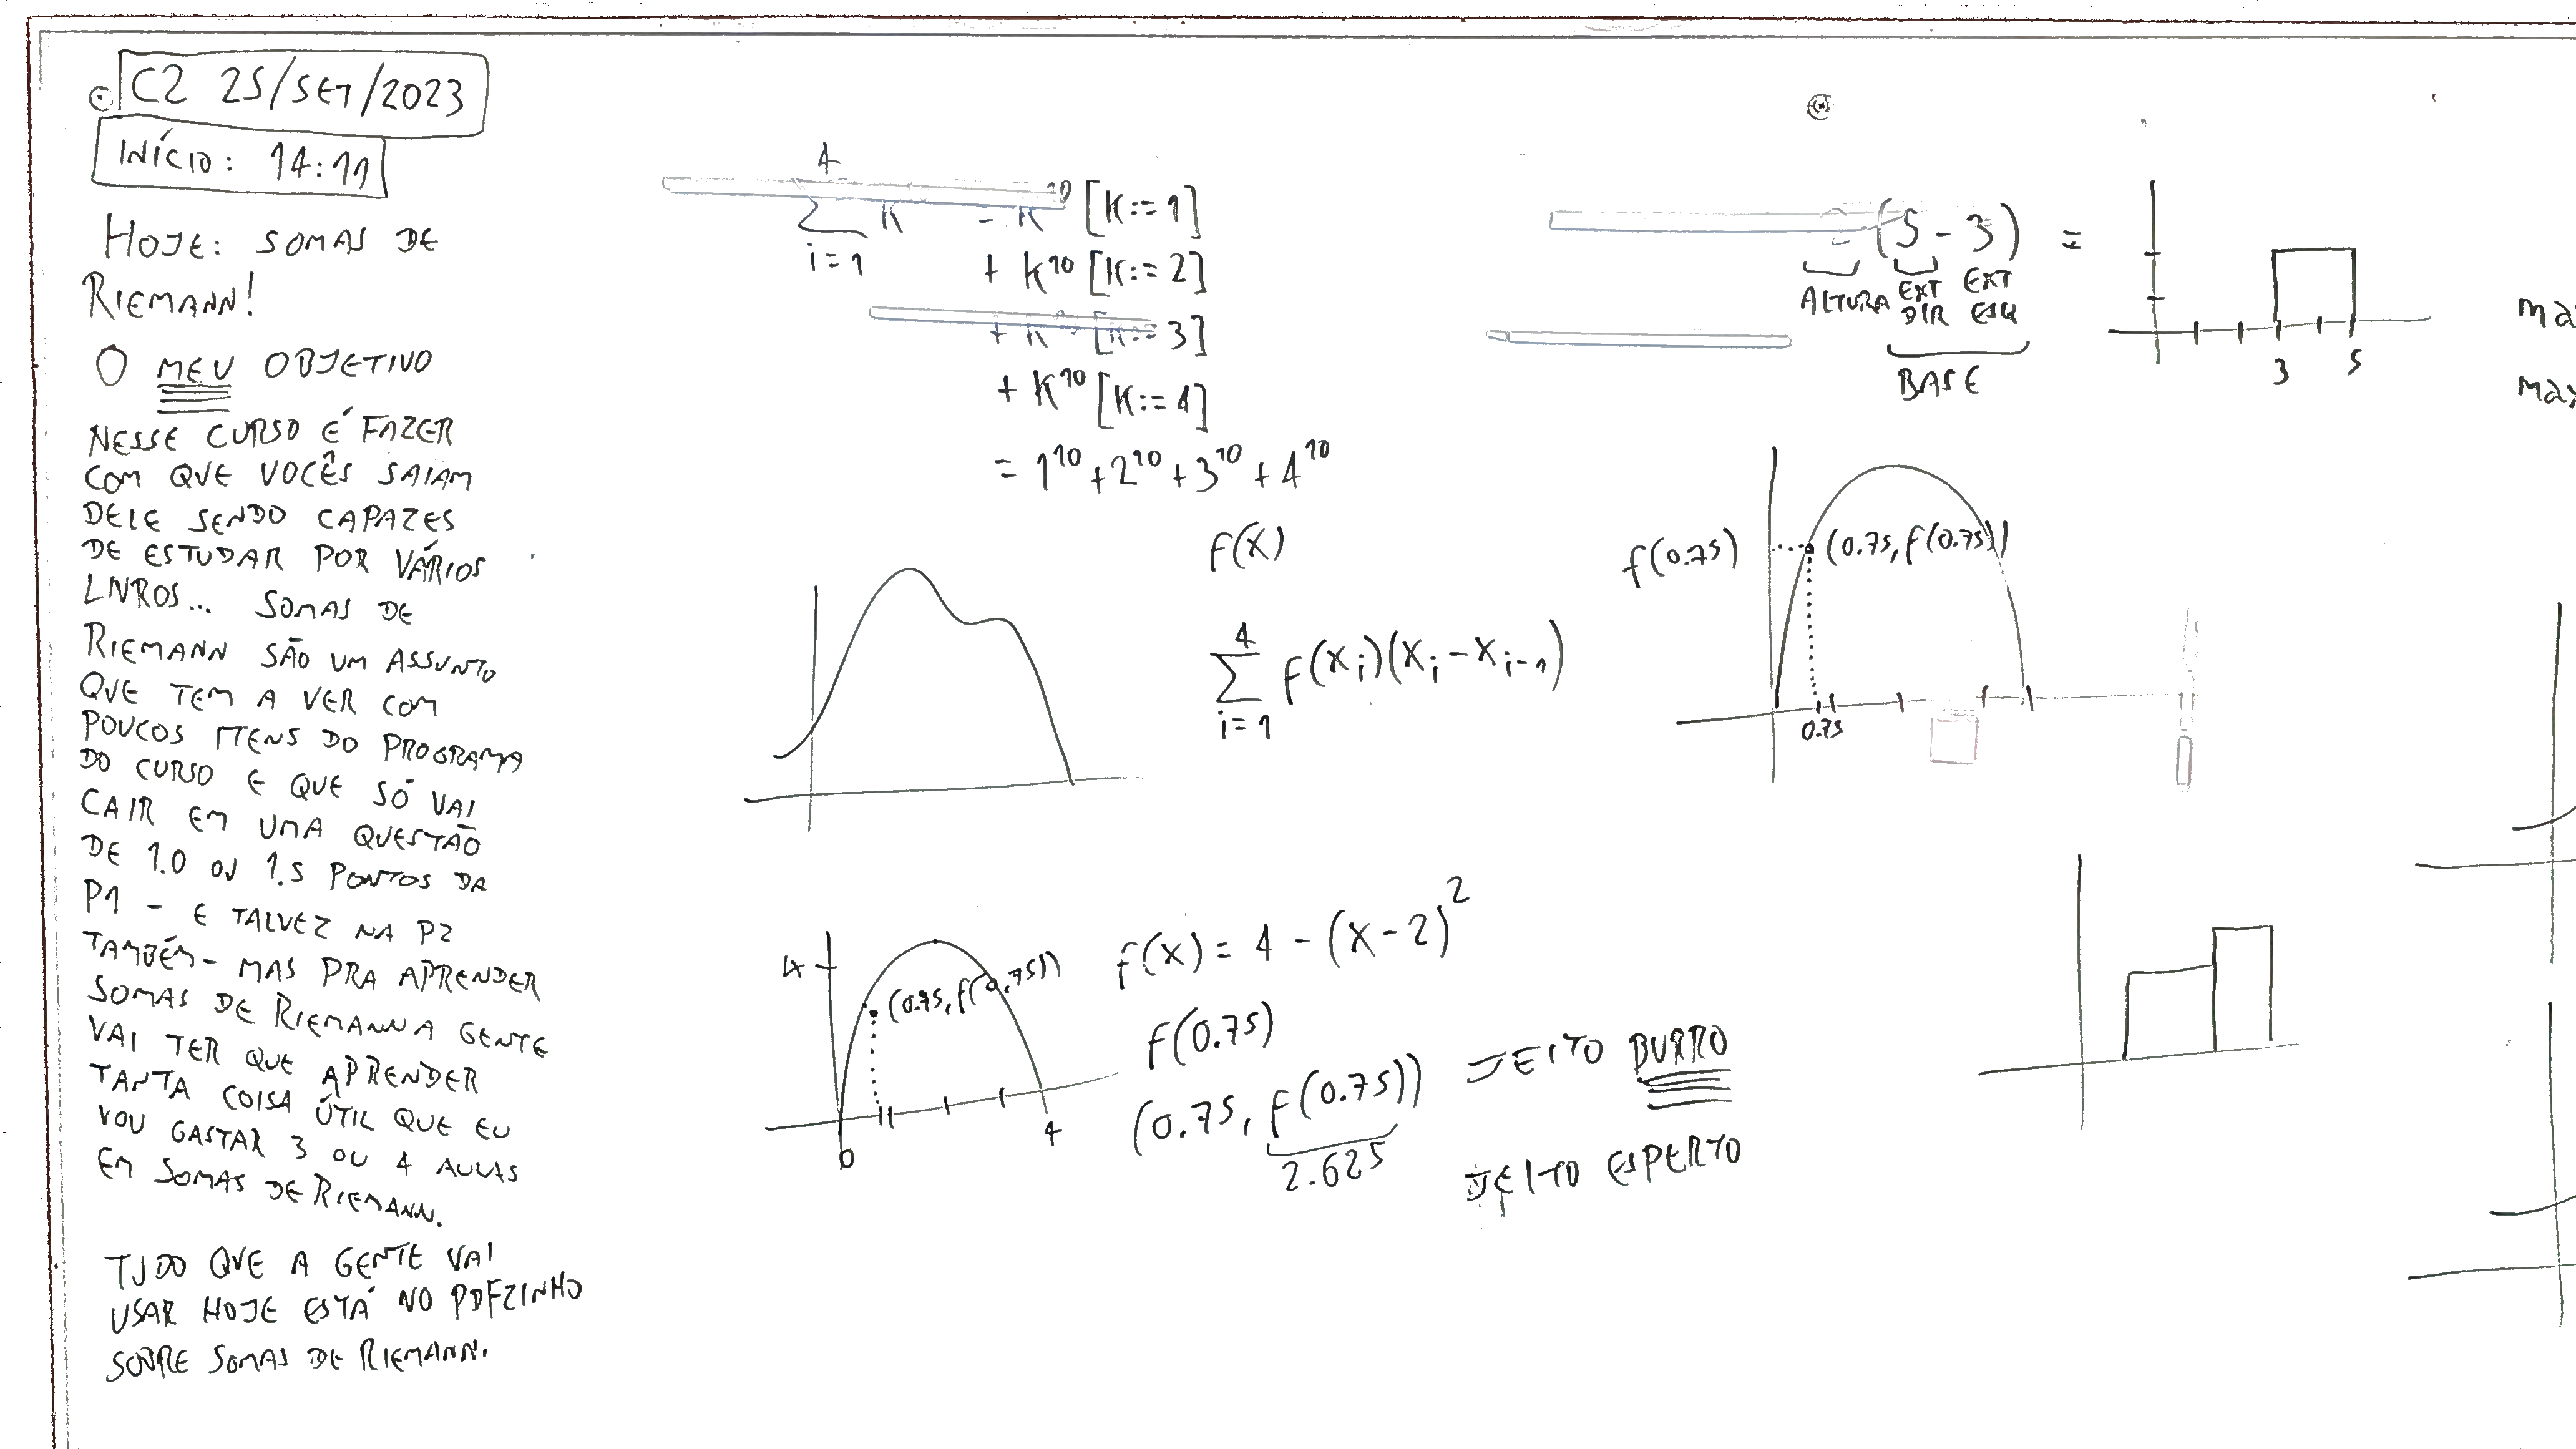 C2 25/SET/2023
INÍCIO: 14:11
HOJE: SOMAS DE
RIEMANN!
O MEU OBJETIVO
NESSE CURSO É FAZER
COM QUE VOCÊS SAIAM
DELE SENDO CAPAZES
DE ESTUDAR POR VÁRIOS
LIVROS... SOMAS DE
RIEMANN SÃO UM ASSUNTO
QUE TEM A VER COM
POUCOS ITENS DO PROGRAMA
DO CURSO E QUE SÓ VAI
CAIR EM UMA QUESTÃO
DE 1.0 OU 1.5 PONTOS DA
P1 - E TALVEZ NA P2
TAMBÉM - MAS PRA APRENDER
SOMAS DE RIEMANN A GENTE
VAI TER QUE APRENDER
TANTA COISA ÚTIL QUE EU
VOU GASTAR 3 OU 4 AULAS
EM SOMAS DE RIEMANN.
TUDO QUE A GENTE VAI
USAR HOJE ESTÁ NO PDFZINHO
SOBRE SOMAS DE RIEMANN.
4
∑ K = K^10 [K:=1]
i=1
+ K^10 [K:=2]
+ K [K:=3]
+ K^10 [K:=4]
= 1^10 + 2^10 + 3^10 + 4^10
f(x)
4
∑ f(x_i)(x_i - x_{i-1})
i=1
4
(0.75, f(0.75))
0
4
f(x) = 4 - (x-2)^2
f(0.75)
(0.75, f(0.75))
2.625
JEITO BURRO
JEITO ESPERTO
(5-3) =
ALTURA EXT DIR EXT ESQ
BASE
3 5
f(0.75) (0.75, f(0.75))
0.75